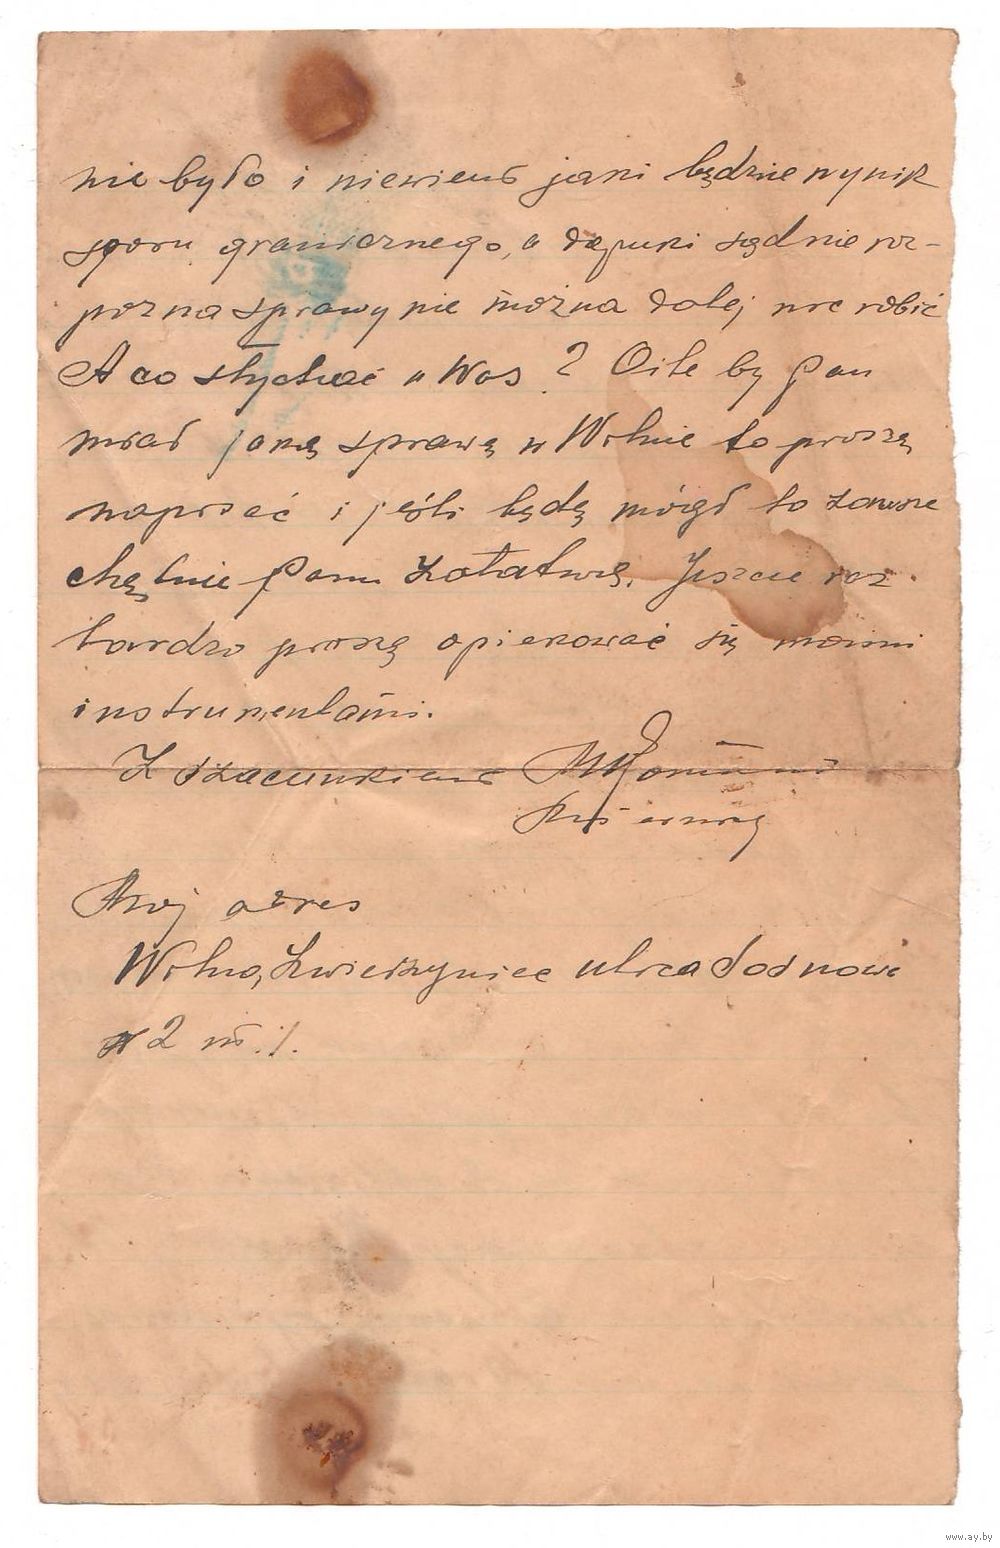 nie było i niewiem jaki będzie wynik
sporu granicznego, a dopuki sąd nie roz-
pozna sprawy nie można dalej nic robić
A co słychać u Was? O ile by Pan
miał jaką sprawę w Wilnie to proszę
napisać i jeśli będę mógł to zawsze
chętnie Panu załatwię. Jeszcze raz
bardzo proszę opiekować się moimi
instrumentami.
Z szacunkiem
Mój adres
Wilno, Zwierzyniec ulica Sosnowa
N 2 m. 1.
www.ay.by